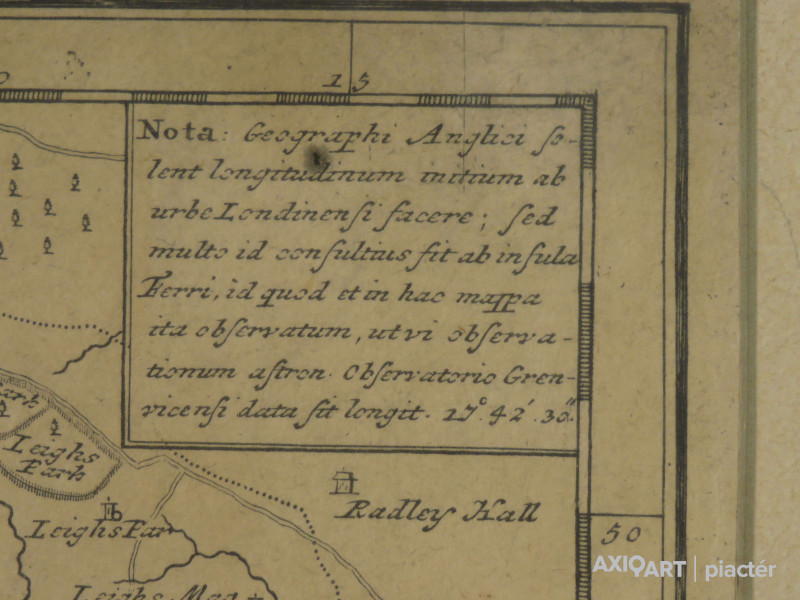 15
Nota: Geographi Anglici so-
lent longitudinum initium ab
urbe Londinensi facere; sed
multo id consultius fit ab insula
Ferri, id quod et in hac mappa
ita observatum, ut vi observa-
tionum astron. Observatorio Gren-
vicensi data sit longit. 17°. 42'. 30".
Park
Leighs
Park
Radley Hall
Leighs Par
50
Leighs Mag
AXIOART | piactér